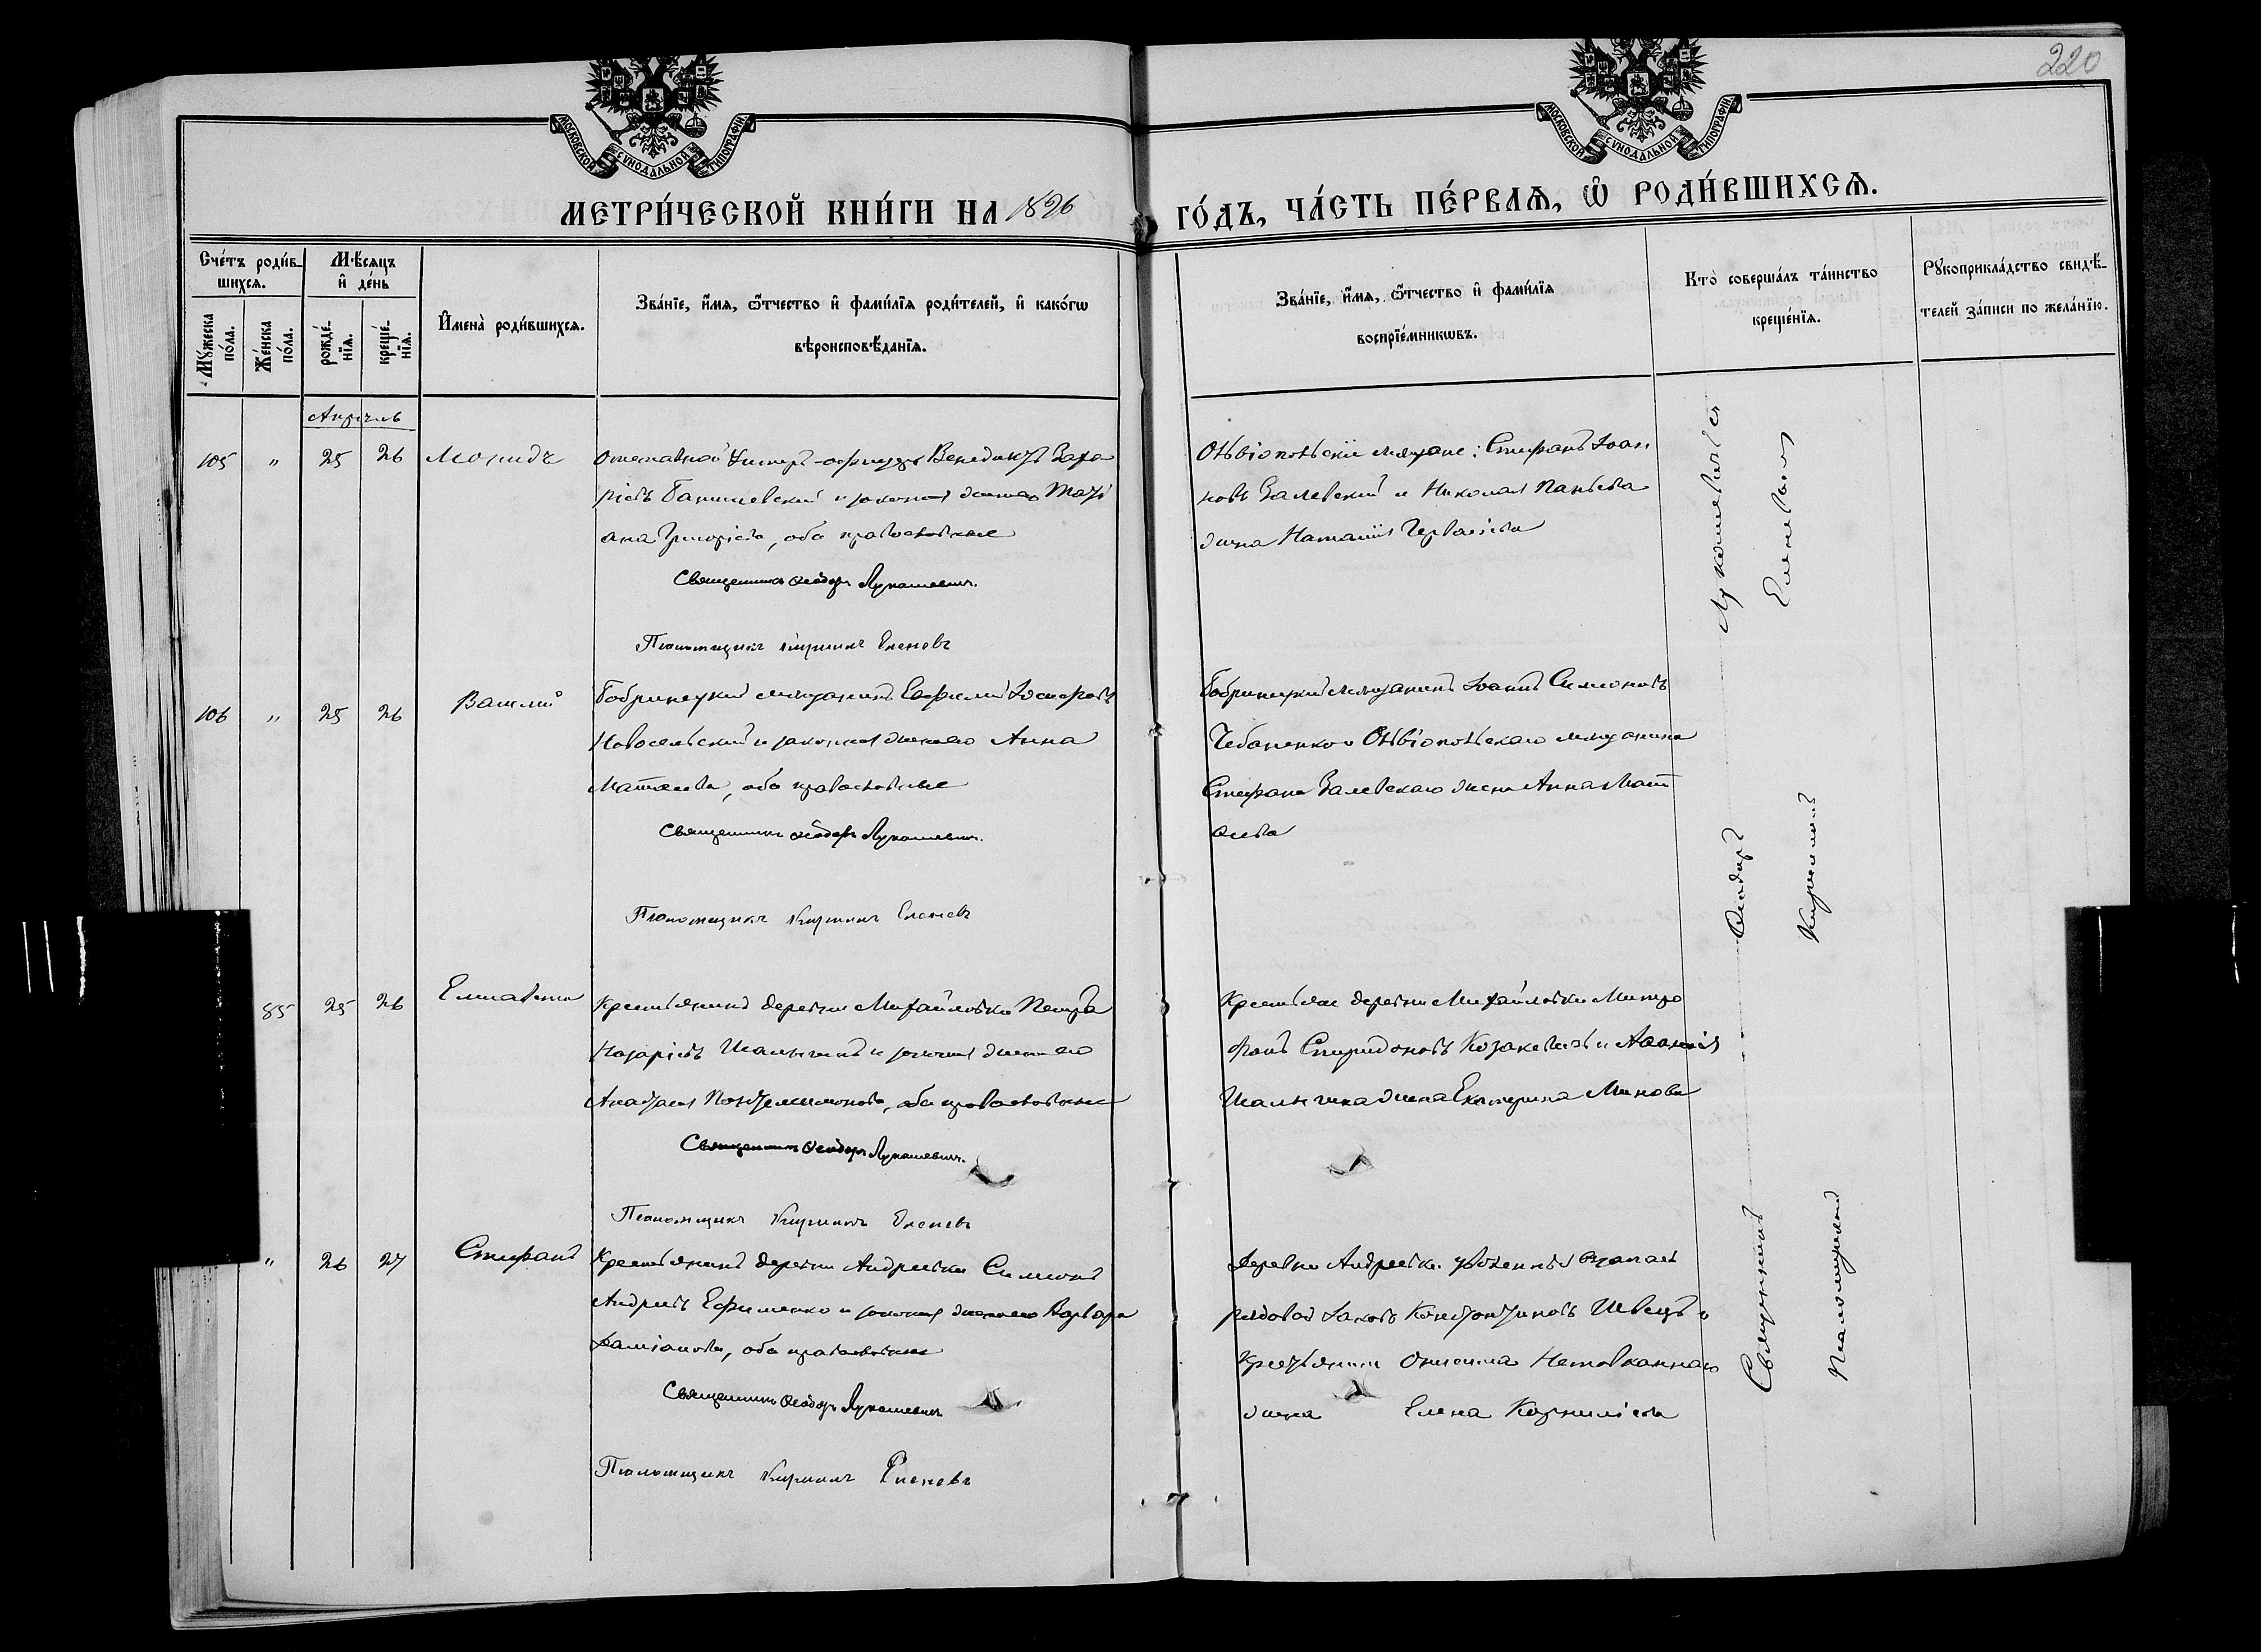 220
МОСКОВСКОЙ СѴНОДАЛЬНОЙ ТИПОГРАФІИ
МОСКОВСКОЙ СѴНОДАЛЬНОЙ ТИПОГРАФІИ
МЕТРИ́ЧЕСКОЙ КНИ́ГИ НА 1896 ГО́ДЪ, ЧА́СТЬ ПЕ́РВАѦ, Ѽ РОДИ́ВШИХСѦ.
Сче́тъ роди́в-
шихсѧ.
Мꙋ́жеска по́ла.
Же́нска по́ла.
Мѣ́сѧцъ
и҆ де́нь
рожде́-нїѧ.
креще́-нїѧ.
И҆мена̀ роди́вшихсѧ.
Зва́нїе, и҆́мѧ, ѻ҆́тчество и҆ фами́лїѧ роди́телей, и҆ како́гѡ
вѣроисповѣ́данїѧ.
Зва́нїе, и҆́мѧ, ѻ҆́тчество и҆ фами́лїѧ
воспрїе́мникѡвъ.
Кто̀ соверша́лъ та́инство
креще́нїѧ.
Рꙋкоприкла́дство свидѣ́-
телей за́писи по жела́нїю.
Апрѣль
105 " 25 26 Леонидъ
Отставной Унтеръ-офицеръ Венедиктъ Заха
ріевъ и законная жена его Тати
ана Григоріева, оба православные
Священникъ Ѳеодоръ Лукашевичъ.
Псаломщикъ Кириллъ Еленевъ
Ольвіопольскіе мѣщане: Стефанъ Іоан
новъ Залевскій и Николая
жена Наталія Герасіева
106 " 25 26 Василій
Бобринецкій мѣщанинъ Евфимій Іосифовъ
Новосельскій и законная жена его Анна
Матѳеева, оба православные
Священникъ Ѳеодоръ Лукашевичъ.
Псаломщикъ Кириллъ Еленевъ
Бобринецкій мѣщанинъ Іоаннъ Симеоновъ
Чебаненко и Ольвіопольскаго мѣщанина
Стефана Залевскаго жена Анна Матѳ
еева
85 25 26 Елисавета
Крестьянинъ деревни Михайловки Петръ
Назаріевъ и законная жена его
Анастасія Пантелеимонова, оба православные
Священникъ Ѳеодоръ Лукашевичъ.
Псаломщикъ Кириллъ Еленевъ
Крестьяне деревни Михайловки Митро
фанъ Спиридоновъ Козакевичъ и Аѳанасія
жена Екатерина Минова
" 26 27 Стефанъ
Крестьянинъ деревни Андреевки Симеонъ
Андреевъ Ефименко и законная жена его Варвара
Даміанова, оба православные
Священникъ Ѳеодоръ Лукашевичъ
Псаломщикъ Кириллъ Еленевъ
Деревни Андреевки уволенный въ запасъ
рядовой Іаковъ Константиновъ Швецъ и
крестьянина Онисима
жена Елена Корнилієва
Священникъ Ѳеодоръ Лукашевичъ
Псаломщикъ Кириллъ Еленевъ